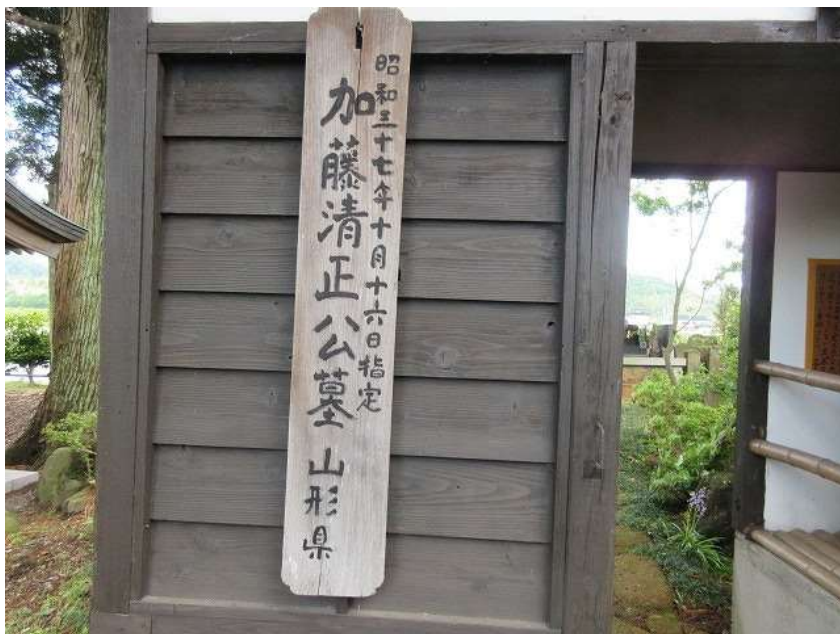 昭和三十七年十月十六日指定
加藤清正公墓 山形県